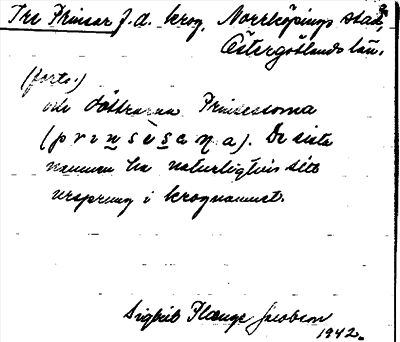 Tre Prinsar f.d. krog, Norrköpings stad,
Östergötlands län.
(forts.)
och döttrarna Prinsessorna
(prinsesana). De sista
namnen ha naturligtvis sitt
ursprung i krognamnet.
Sigbrit Plænge Jacobson
1942.